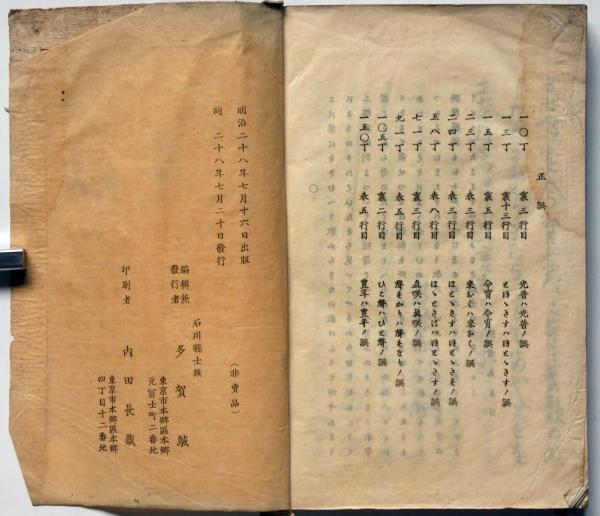 正誤
一〇丁 裏三行目 光音ハ光音ノ誤
一三丁 裏十三行目 とほゝきすハほとゝきすノ誤
一五丁 裏五行目 今宵ハ今宵ノ誤
二三丁 表三行目 來むくハ來なくノ誤
二四丁 表三行目 はとゝきすハほとゝきすノ誤
五八丁 表八行目 ほゝときすハほとゝきすノ誤
七一丁 裏三行目 直咲ハ眞咲ノ誤
九一丁 表五行目 聲をかりハ聲をなりノ誤
一〇五丁 裏二行目 ひこ聲ハひと聲ノ誤
一五〇丁 表五行目 豊年ハ豊平ノ誤
明治二十八年七月十六日出版
同 二十八年七月二十日發行
(非賣品)
編輯兼發行者
石川縣士族
多賀誠
東京市本郷區本郷
元富士町二番地
印刷者
内田長
東京市本郷區本郷
四丁目十二番地